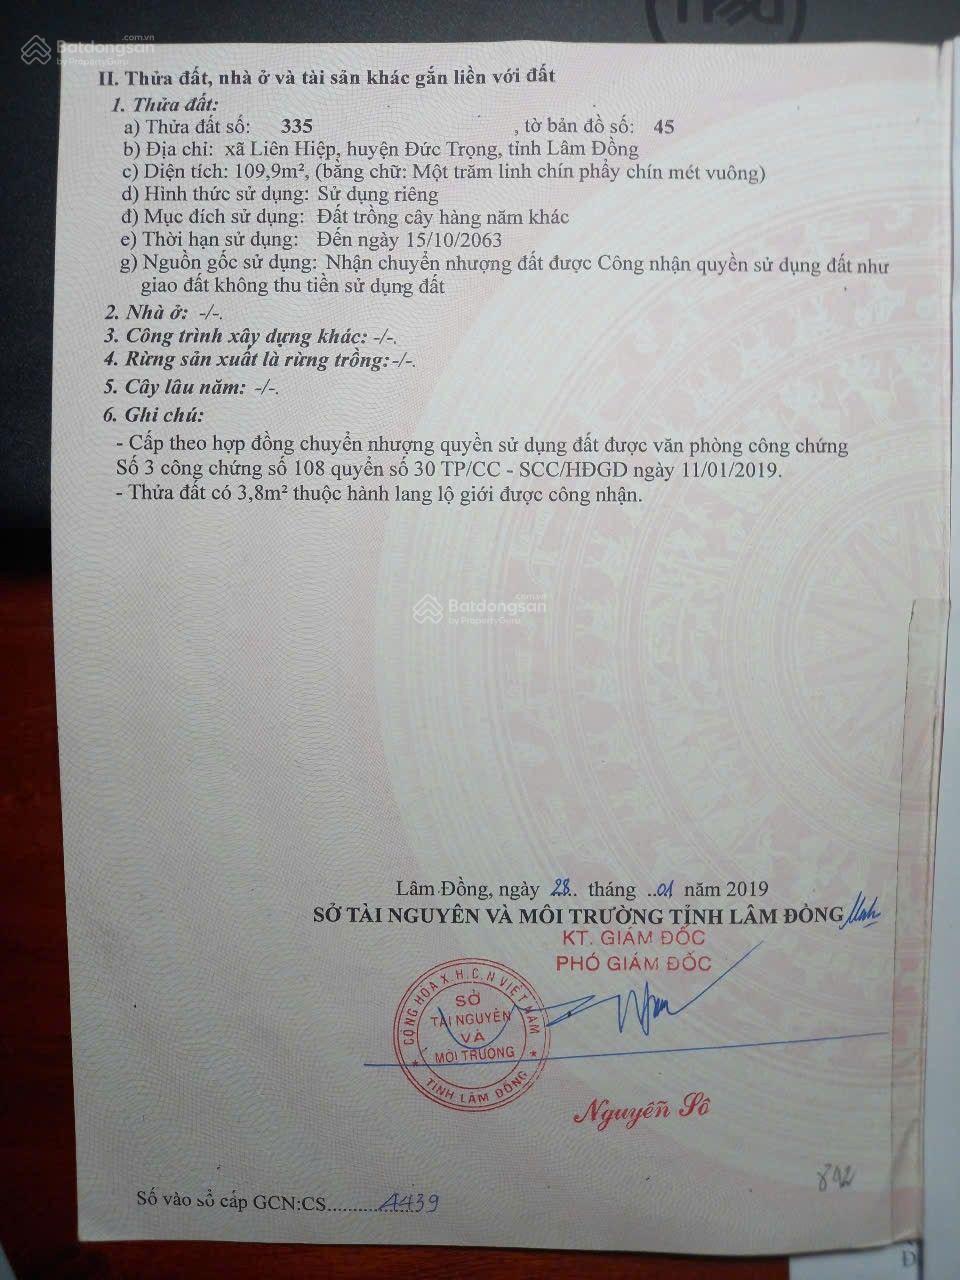 Batdongsan .com.vn
by PropertyGuru
II. Thửa đất, nhà ở và tài sản khác gắn liền với đất
1. Thửa đất:
a) Thửa đất số: 335 , tờ bản đồ số: 45
b) Địa chỉ: xã Liên Hiệp, huyện Đức Trọng, tỉnh Lâm Đồng
c) Diện tích: 109,9m², (bằng chữ: Một trăm linh chín phẩy chín mét vuông)
d) Hình thức sử dụng: Sử dụng riêng
đ) Mục đích sử dụng: Đất trồng cây hàng năm khác
e) Thời hạn sử dụng: Đến ngày 15/10/2063
g) Nguồn gốc sử dụng: Nhận chuyển nhượng đất được Công nhận quyền sử dụng đất như
giao đất không thu tiền sử dụng đất
2. Nhà ở: -/-.
3. Công trình xây dựng khác: -/-.
4. Rừng sản xuất là rừng trồng:-/-.
5. Cây lâu năm: -/-.
6. Ghi chú:
- Cấp theo hợp đồng chuyển nhượng quyền sử dụng đất được văn phòng công chứng
Số 3 công chứng số 108 quyển số 30 TP/CC - SCC/HĐGD ngày 11/01/2019.
- Thửa đất có 3,8m² thuộc hành lang lộ giới được công nhận.
Batdongsan .com.vn
by PropertyGuru
Lâm Đồng, ngày 28.. tháng ..01 năm 2019
SỞ TÀI NGUYÊN VÀ MÔI TRƯỜNG TỈNH LÂM ĐỒNG
KT. GIÁM ĐỐC
PHÓ GIÁM ĐỐC
CỘNG HÒA X.H.C.N VIỆT NAM
SỞ
TÀI NGUYÊN
VÀ
MÔI TRƯỜNG
* TỈNH LÂM ĐỒNG *
Nguyễn Sô
842
Số vào sổ cấp GCN:CS..........4439
Đ